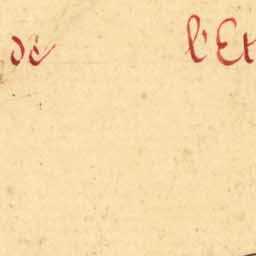 de l'Et